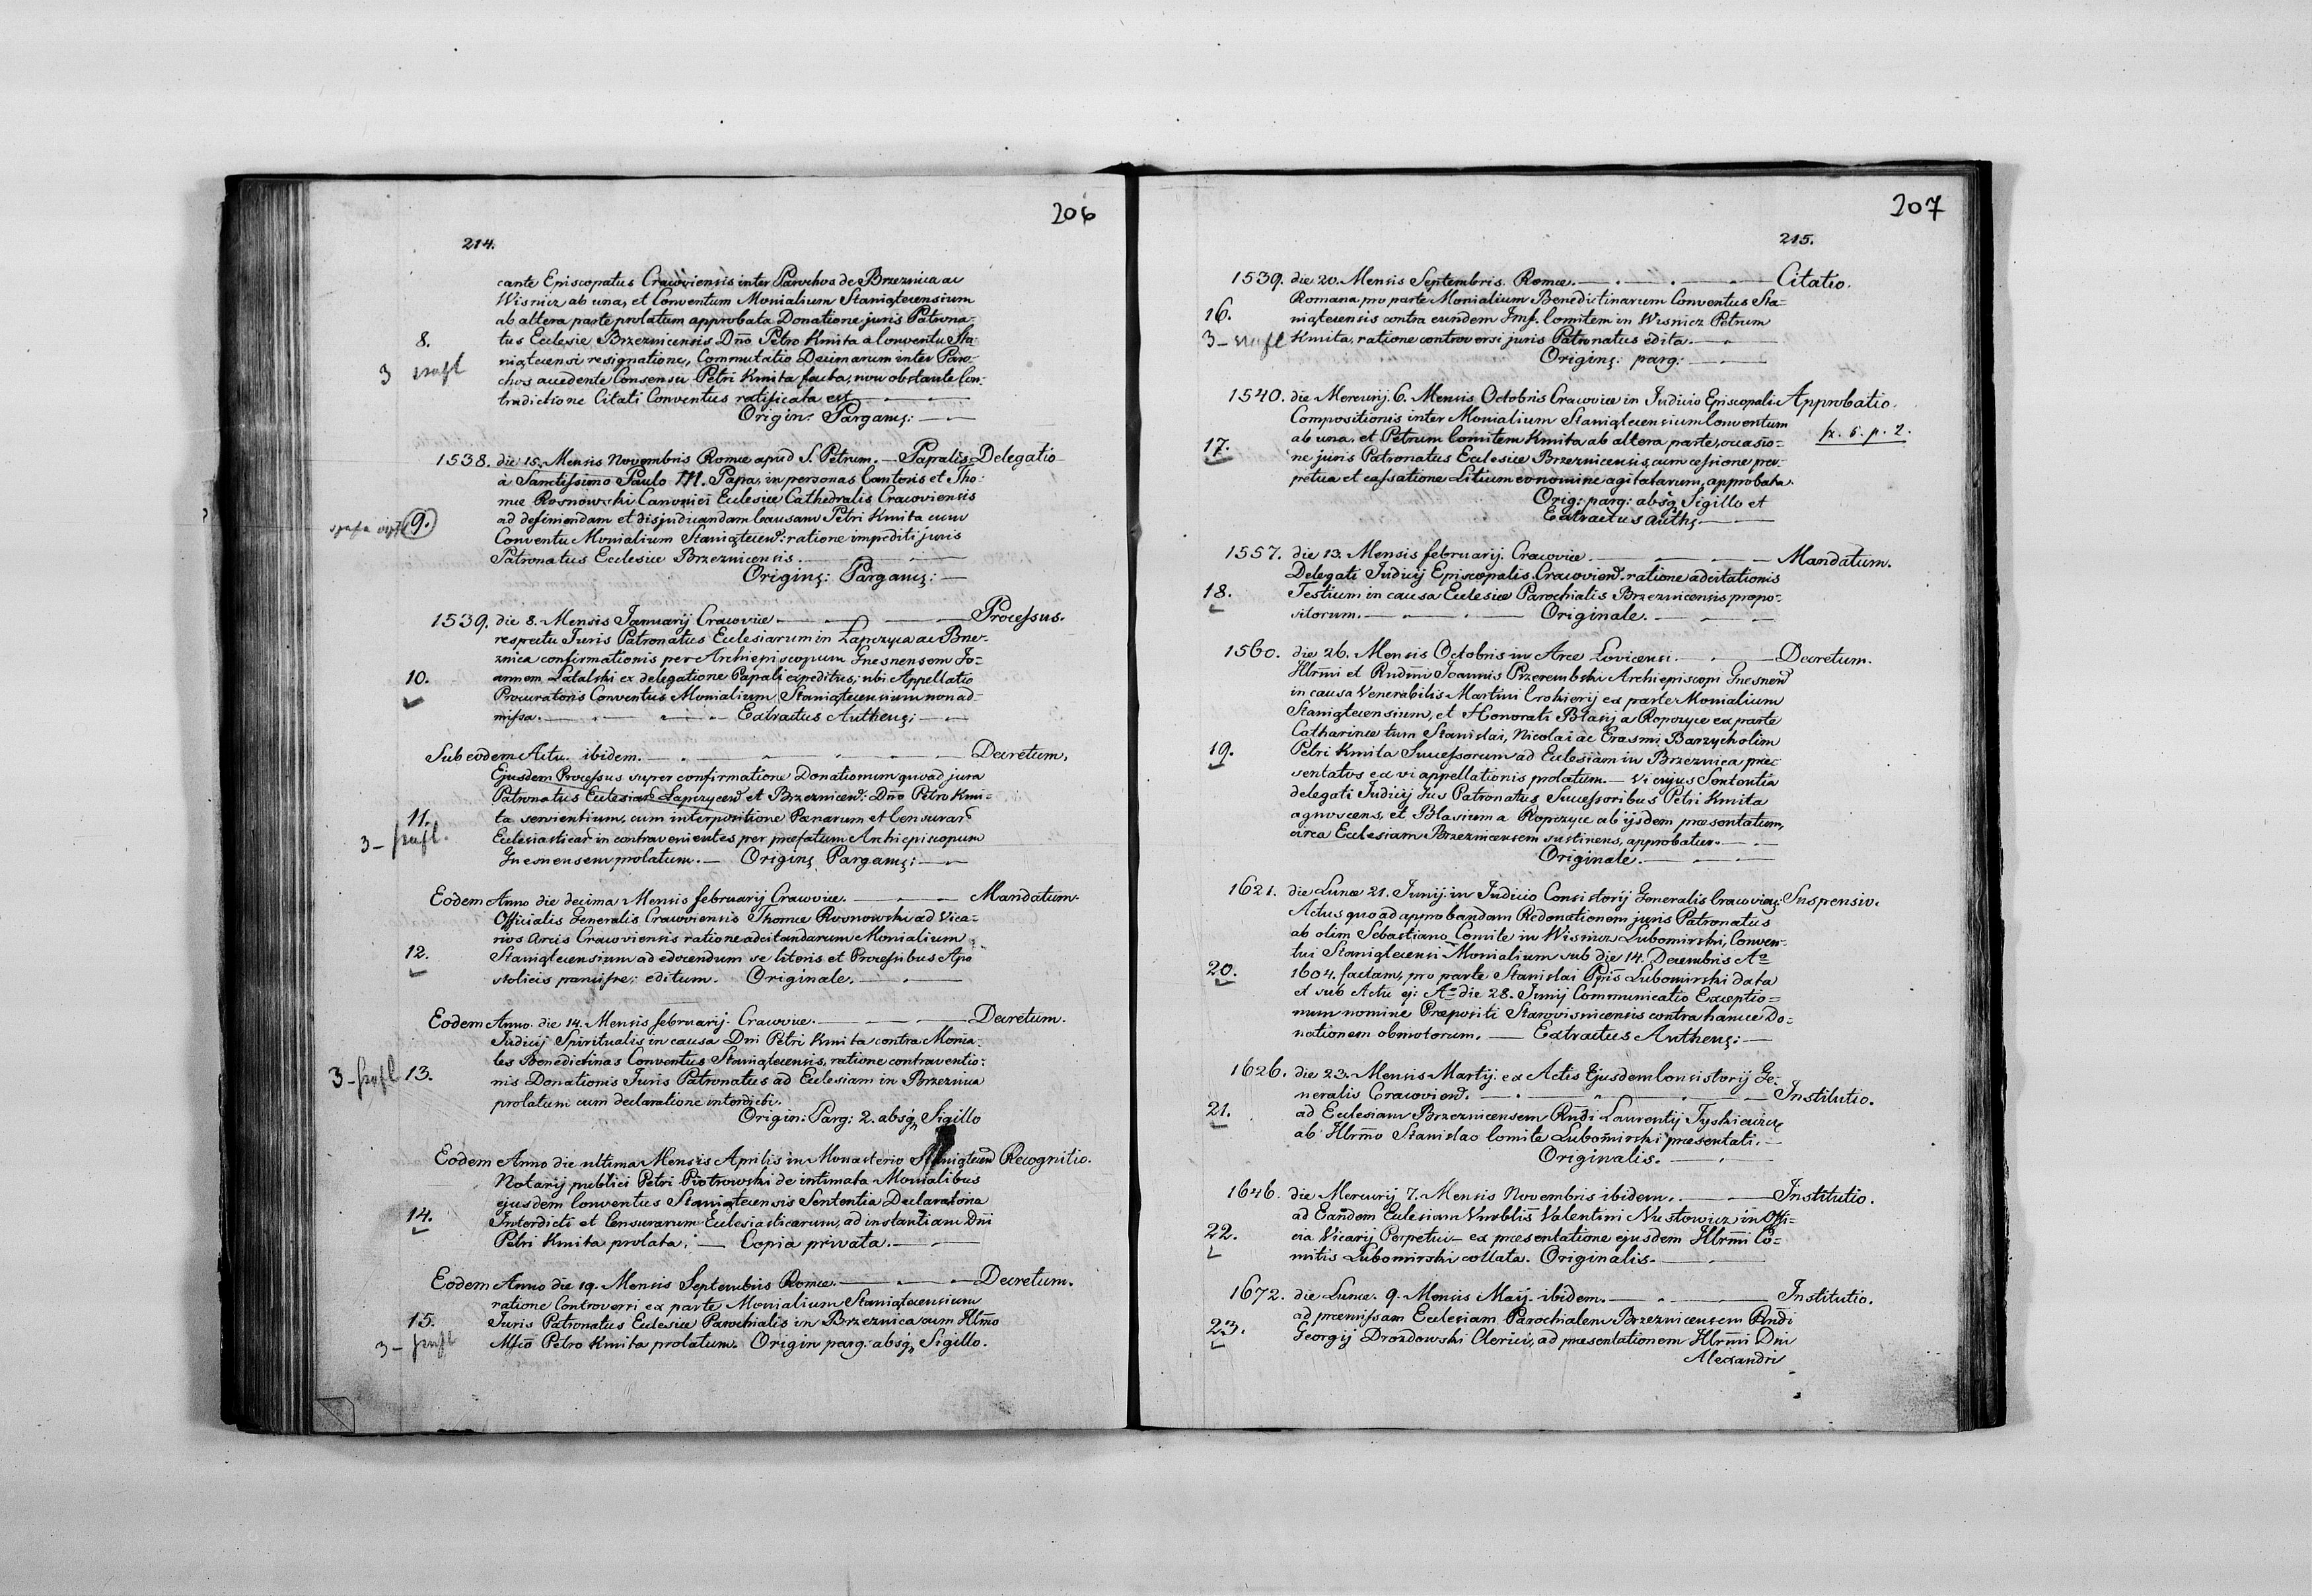 206
214.
cante Episcopatus Cracoviensis inter Parochos de Brzeznica ac
Wisnicz ab una, et Conventum Monialium Staniątecensium
ab altera parte prolatum approbata Donatione juris Patrona-
8. tus Eclesiæ Brzeznicensis Dn̄o Petro Kmita a Conventu Sta-
niątecensi resignatione, Commutatio Decimarum inter Paro-
3
chos accedente Consensu Petri Kmita facta, non obstante Con-
tradictione Citati Conventus ratificata est
Origin: Pargam:
1538. die 15. Mensis Novembris Romæ apud S. Petrum. — Papalis Delegatio
à Sanctissimo Paulo III. Papa, in personas Cantoris et Tho-
mæ Rosnowski Canonici Eclesiæ Cathedralis Cracoviensis
9. ad definiendam et disjudicandam Causam Petri Kmita cum
Conventu Monialium Staniątecen: ratione impediti juris
Patronatus Ecclesiæ Brzeznicensis.
Origin: Pargam: —
1539. die 8. Mensis Januarij Cracoviæ. — Processus.
respectu Juris Patronatus Eclesiarum in Łapczyca ac Brze-
znica confirmationis per Archiepiscopum Gnesnensem Jo=
10. annem Latalski ex delegatione Papali expeditus; ubi Appellatio
Procuratoris Conventus Monialium Staniątecensium non ad-
missa. — Extractus Authen: —
Sub eodem Actu ibidem. — Decretum.
Ejusdem Processus super confirmatione Donationum quoad jura
Patronatus Eclesiar Łapczycen et Brzeznicen: Dn̄o Petro Kmi-
11. ta servientium, cum interpositione Pœnarum et Censurar
3 -
Eclesiasticar in contravenientes per præfatum Archiepiscopum
Gnesnensem prolatum. — Origin: Pargam: —
Eodem Anno die decima Mensis februarij Cracoviæ. — Mandatum.
Officialis Generalis Cracoviensis Thomæ Rosnowski ad Vica-
rios Arcis Cracoviensis ratione adcitandarum Monialium
12. Staniątecensium ad edocendum se literis et Processibus Apo
stolicis paruisse; editum. Originale. —
Eodem Anno. die 14. Mensis februarij. Cracoviæ. — Decretum.
Judicij Spiritualis in causa Dn̄i Petri Kmita contra Monia-
les Benedictinas Conventus Staniątecensis, ratione contraventio-
3 - 13. nis Donationis Juris Patronatus ad Eclesiam in Brzeznica
prolatum cum declaratione interdicti.
Origin: Parg: 2. absq Sigillo
Eodem Anno die ultima Mensis Aprilis in Monasterio Staniątecen Recognitio.
Notarij publici Petri Piotrowski de intimata Monialibus
ejusdem Conventus Staniątecensis Sententia Declaratoria
14. Interdicti et Censurarum Eclesiasticarum, ad instantiam Dn̄i
Petri Kmita prolata. — Copia privata. —
Eodem Anno die 19. Mensis Septembris Romæ. — Decretum.
ratione Controversi ex parte Monialium Staniątecensium
15. Juris Patronatus Eclesiæ Parochialis in Brzeznica cum Illm̄o
3 -
Mfico Petro Kmita prolatum. Origin parg: absq Sigillo.
207
215.
1539. die 20. Mensis Septembris. Romæ. — Citatio.
Romana pro parte Monialium Benedictinarum Conventus Sta=
16. niątecensis contra eundem Jmf. Comitem in Wisnicz Petrum
3 - Kmita, ratione controversi juris Patronatus edita. —
Origin: parg: —
1540. die Mercurij. 6. Mensis Octobris Cracoviæ in Judicio Episcopali. Approbatio.
Compositionis inter Monialium Staniątecensium Conventum
17. ab una, et Petrum Comitem Kmita ab altera parte, occasio= fz. 5. p. 2.
ne juris Patronatus Eclesiæ Brzeznicensis, cum cessione per-
petua et cassatione Litium eo nomine agitatarum, approbata.
Orig: parg: absq Sigillo et
Extractus auth: —
1557. die 13. Mensis februarij. Cracoviæ. — Mandatum.
Delegati Judicij Episcopalis Cracovien. ratione adcitationis
18. Testium in causa Eclesiæ Parochialis Brzeznicensis propo-
sitorum. — Originale. —
1560. die 26. Mensis Octobris in Arce Lovicensi. — Decretum.
Illrm̄i et Rndm̄i Joannis Przerembski Archiepiscopi Gnesnen
in causa Venerabilis Martini Crokierij ex parte Monialium
Staniątecensium, et Honorati Blasij a Ropczyce ex parte
Catharinæ tum Stanislai, Nicolai ac Erasmi Barzych olim
19. Petri Kmita Successorum ad Eclesiam in Brzeznica præ-
sentatos ex vi appellationis prolatum. — Vi cujus Sententia
delegati Judicij Jus Patronatus Successoribus Petri Kmita
agnoscens, et Blasium a Ropczyce ab ijsdem præsentatum,
circa Ecclesiam Brzeznicensem sustinens, approbatur. —
Originale. —
1621. die Lunæ 21. Junij. in Judicio Consistorij Generalis Cracovien: Suspensio.
Actus quoad approbandam Redonationem juris Patronatus
ab olim Sebastiano Comite in Wisnicz Lubomirski, Conven-
tui Staniątecensi Monialium sub die 14. Decembris Ao
20. 1604. factam, pro parte Stanislai Lubomirski data
et sub Actu ej: Ao die 28. Junij Communicatio Exceptio=
num nomine Præpositi Starowisnicensis contra hancce Do=
nationem obmotorum. — Extractus Authen: —
1626. die 23. Mensis Martij. ex Actis Ejusdem Consistorij Ge-
neralis Cracovien. — Institutio.
21. ad Eclesiam Brzeznicensem Rn̄di Laurentij Tyskiewicz
ab Illrm̄o Stanislao Comite Lubomirski præsentati. —
Originalis. —
1646. die Mercurij 7. Mensis Novembris ibidem. — Institutio.
ad Eandem Eclesiam Valentini Nustowicz in Offi=
22. cia Vicarij Perpetui — ex præsentatione ejusdem Illrm̄i Co=
mitis Lubomirski collata. Originalis. —
1672. die Lunæ. 9. Mensis Maij. ibidem. — Institutio.
ad præmissam Eclesiam Parochialem Brzeznicensem Rn̄di
23. Georgij Drozdowski Clerici, ad præsentationem Illrm̄i Dn̄i
Alexandri